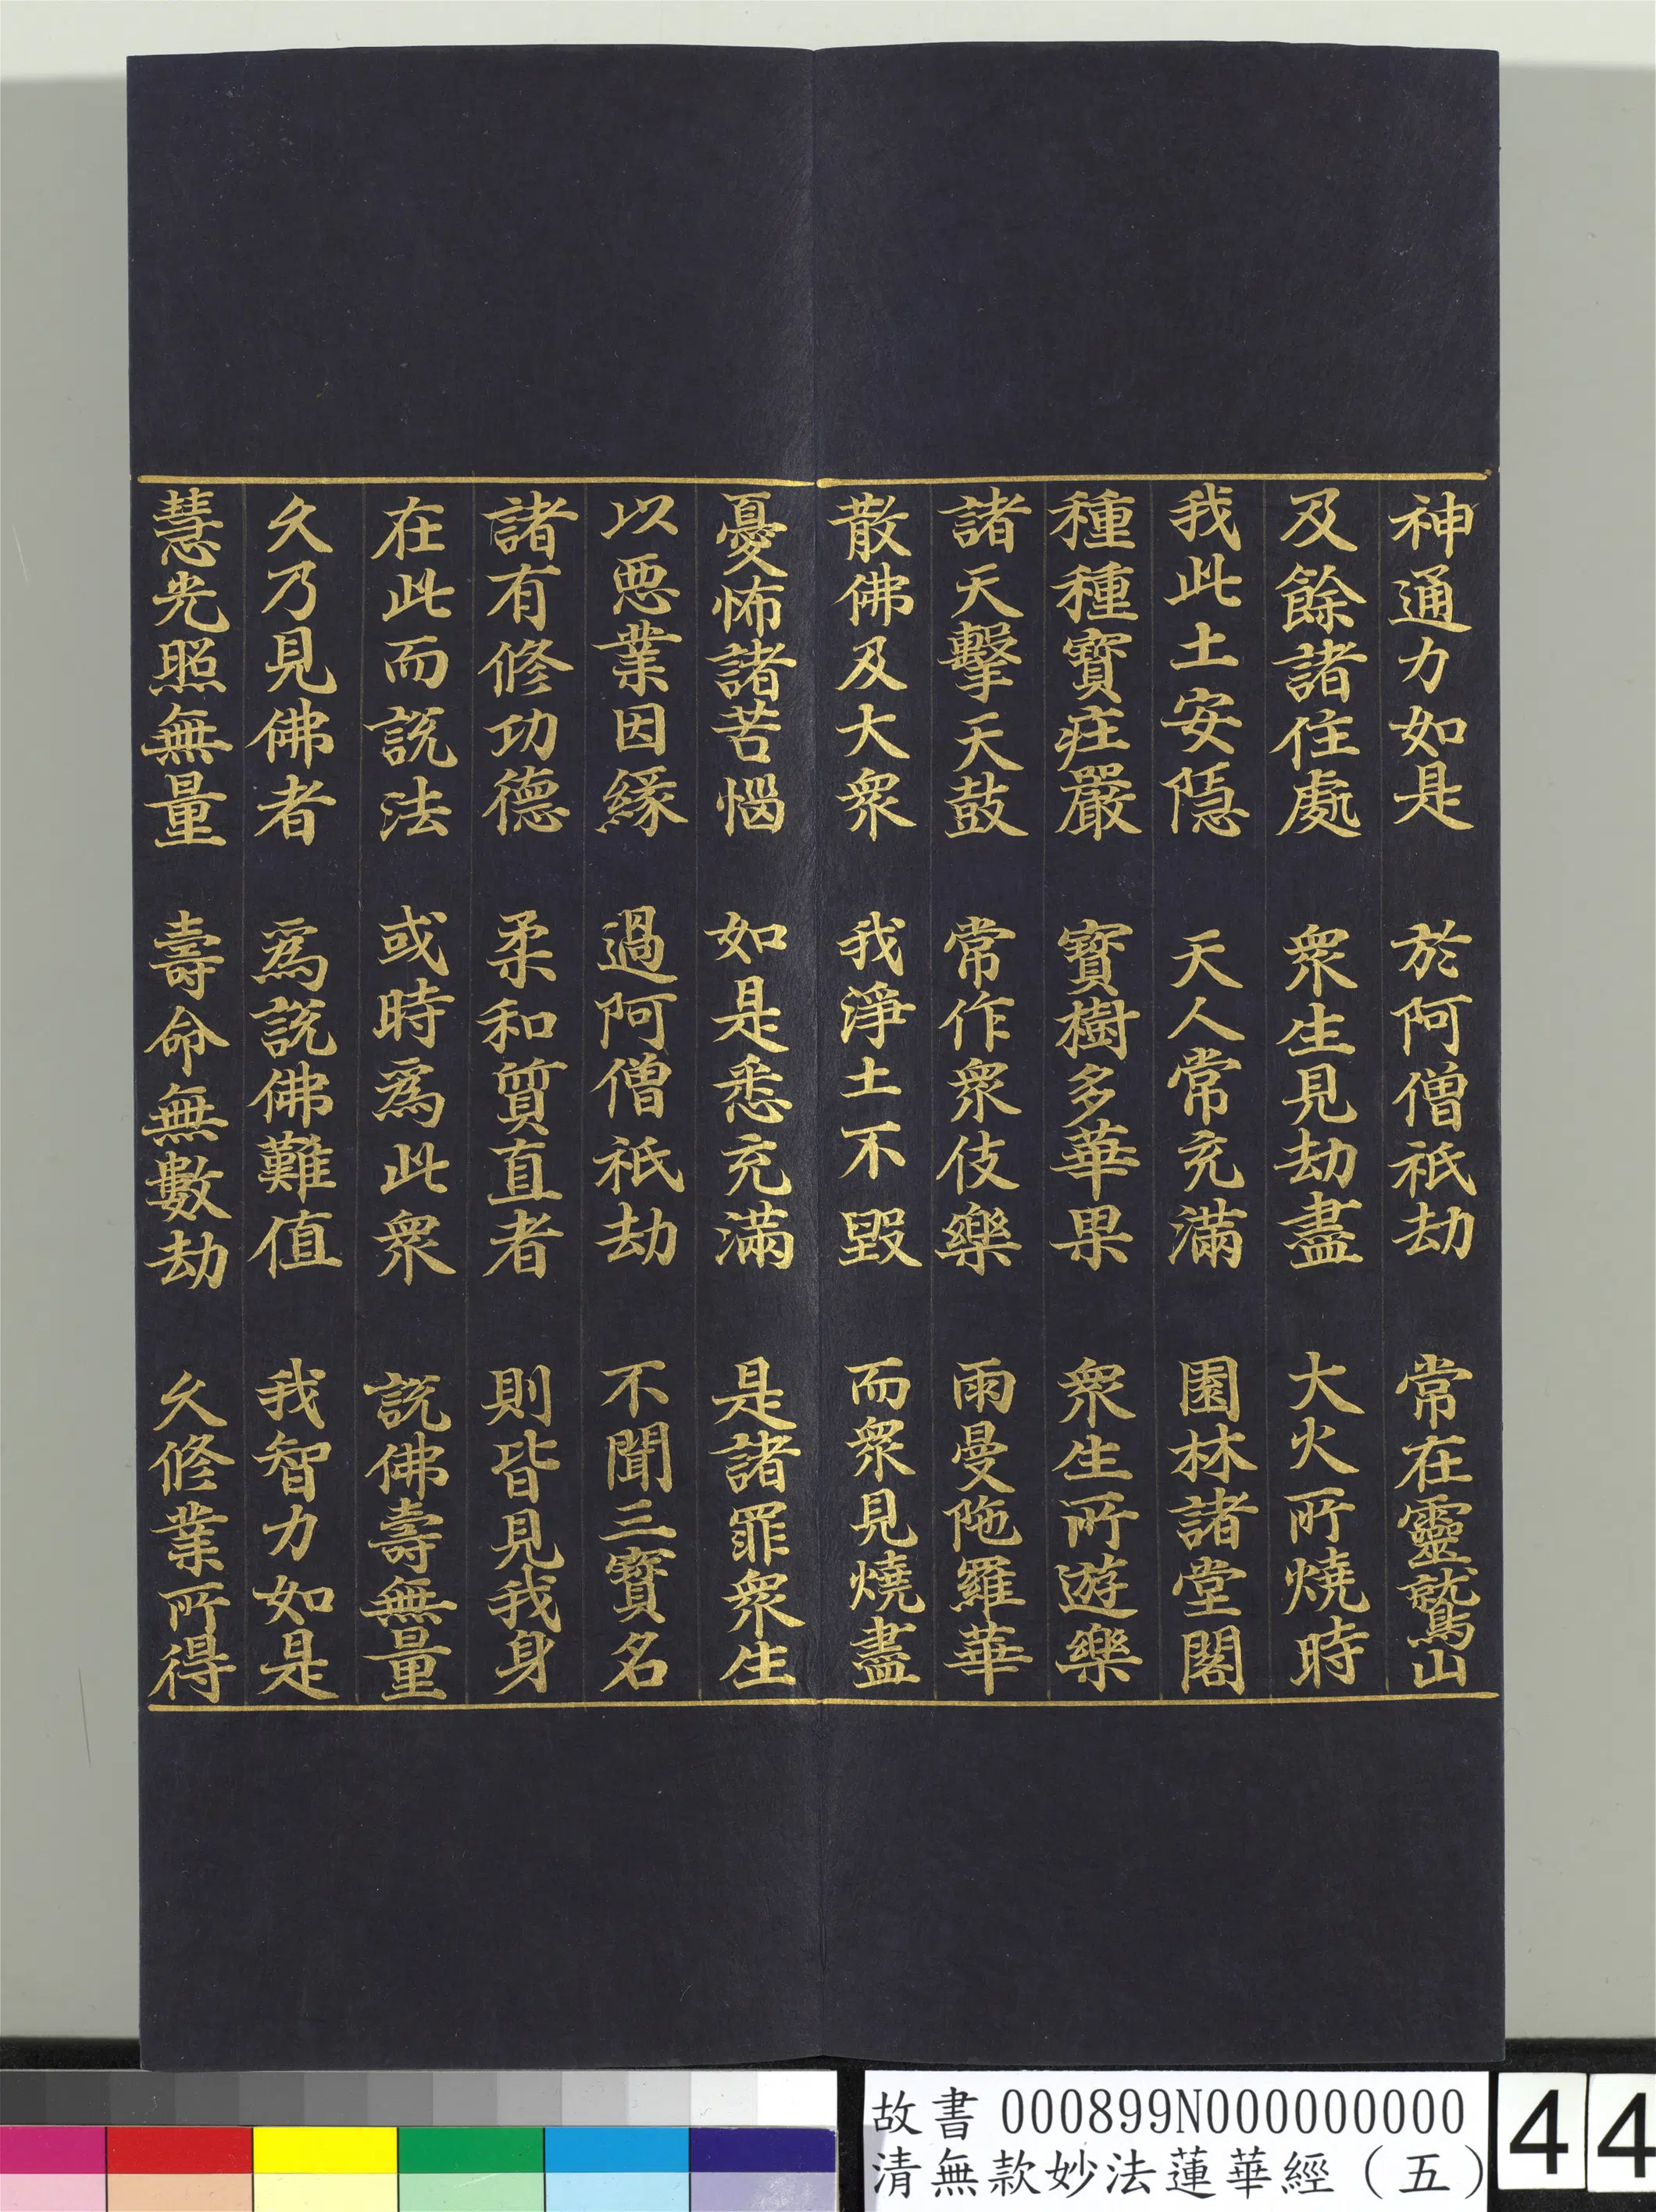 神通力如是　於阿僧祇劫　常在靈鷲山
及餘諸住處　衆生見劫盡　大火所燒時
我此土安隱　天人常充滿　園林諸堂閣
種種寶莊嚴　寶樹多華果　衆生所遊樂
諸天擊天鼓　常作衆伎樂　雨曼陁羅華
散佛及大衆　我淨土不毀　而衆見燒盡
憂怖諸苦惱　如是悉充滿　是諸罪衆生
以惡業因緣　過阿僧祇劫　不聞三寶名
諸有修功德　柔和質直者　則皆見我身
在此而説法　或時爲此衆　説佛壽無量
久乃見佛者　爲説佛難值　我智力如是
慧光照無量　壽命無數劫　久修業所得
故書 000899N000000000
清無款妙法蓮華經（五）
44